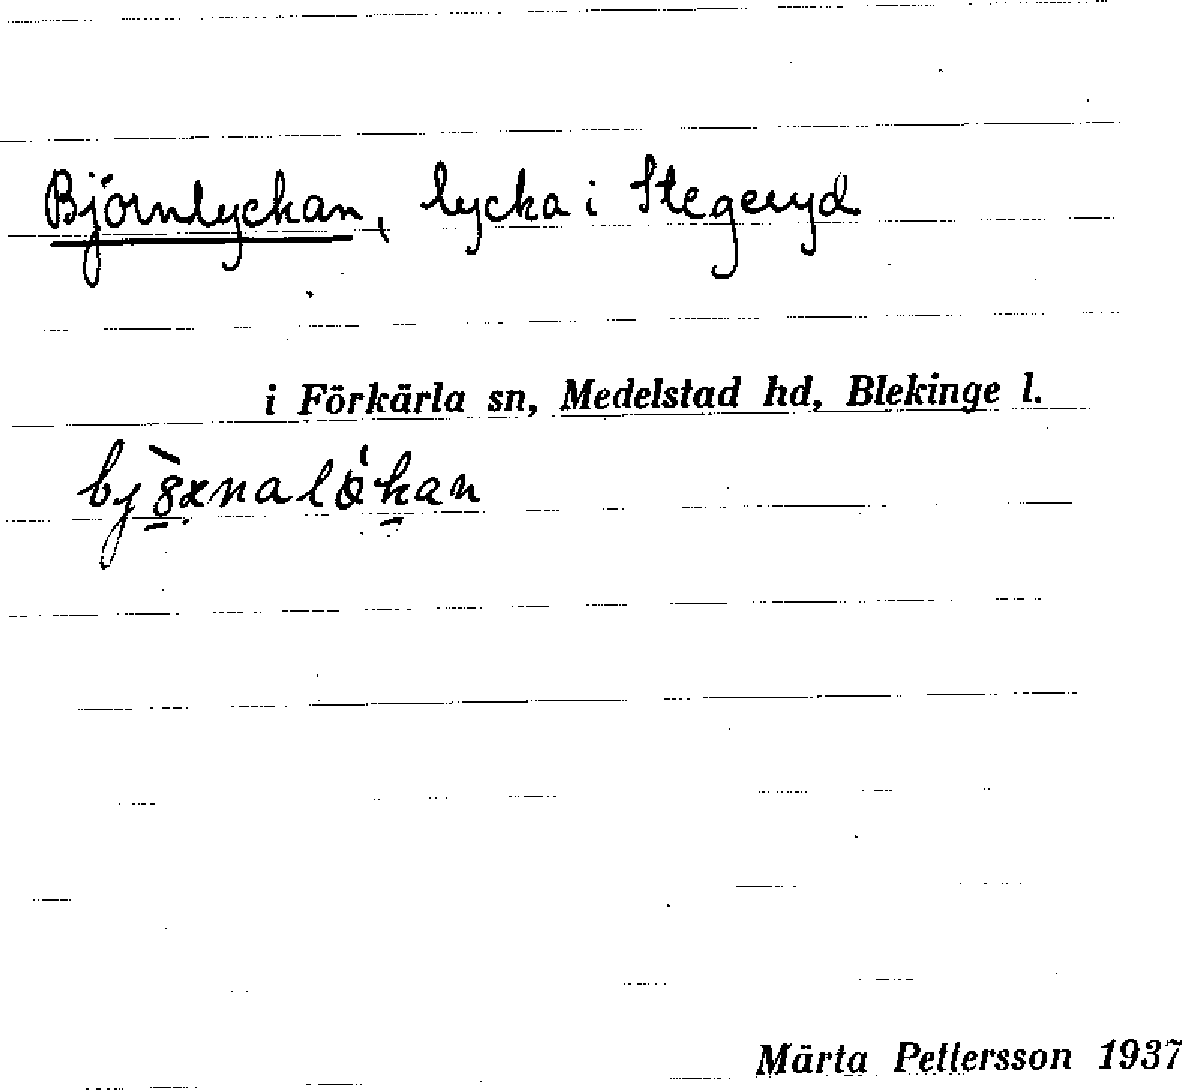 Björnlyckan, lycka i Stegeryd
i Förkärla sn, Medelstad hd, Blekinge l.
Märta Pettersson 1937